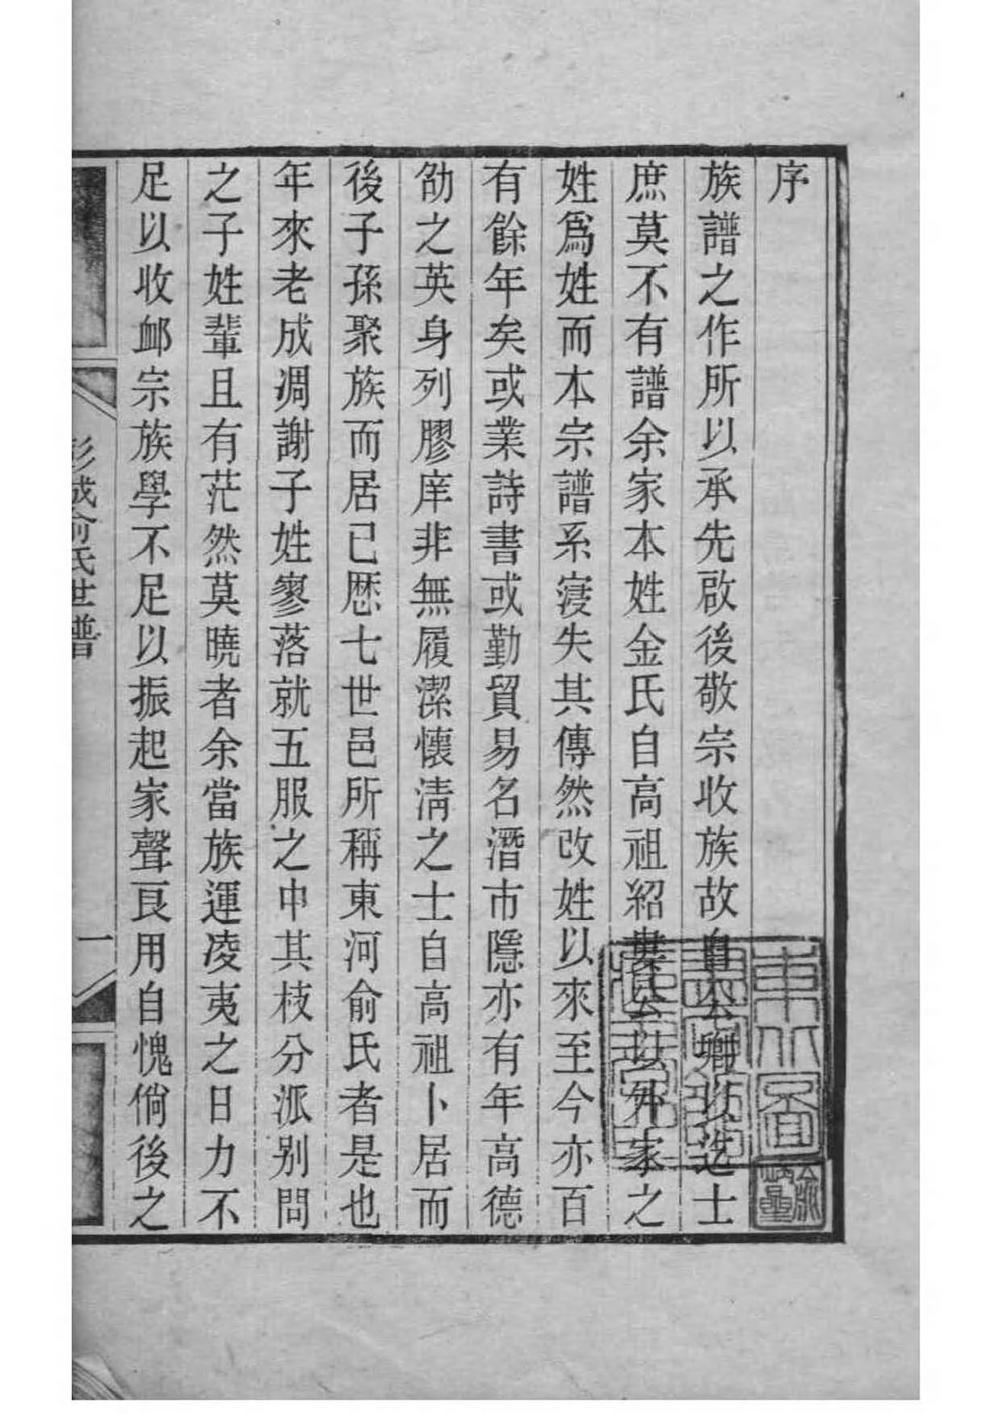 序
族譜之作所以承先啟後敬宗收族故自公卿以迄士
庶莫不有譜余家本姓金氏自高祖紹公以外家之
姓爲姓而本宗譜系寖失其傳然改姓以來至今亦百
有餘年矣或業詩書或勤貿易名潛市隱亦有年高德
劭之英身列膠庠非無履潔懷淸之士自高祖卜居而
後子孫聚族而居已歷七世邑所稱東河俞氏者是也
年來老成凋謝子姓寥落就五服之中其枝分派別問
之子姓輩且有茫然莫曉者余當族運凌夷之日力不
足以收卹宗族學不足以振起家聲良用自愧倘後之
彭城俞氏世譜
一